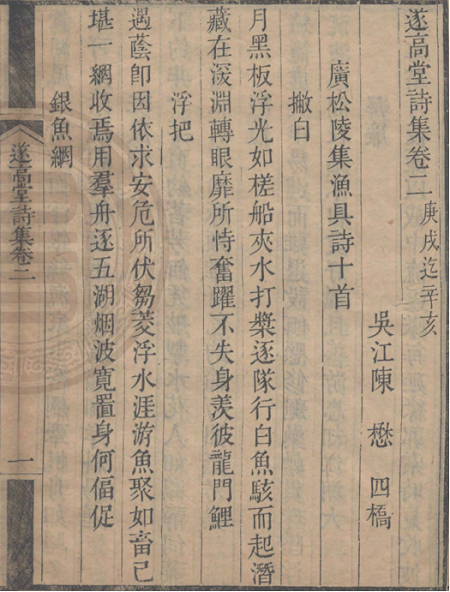 遂高堂詩集卷二 庚戌迄辛亥
吳江陳 懋 四橋
廣松陵集漁具詩十首
撇白
月黑板浮光如槎船夾水打槳逐隊行白魚駭而起潛
藏在深淵轉眼靡所恃奮躍不失身羨彼龍門鯉
浮把
遇蔭即因依求安危所伏芻菱浮水涯游魚聚如畜已
堪一網收焉用羣舟逐五湖烟波寬置身何偪促
銀魚網
遂高堂詩集卷二
一